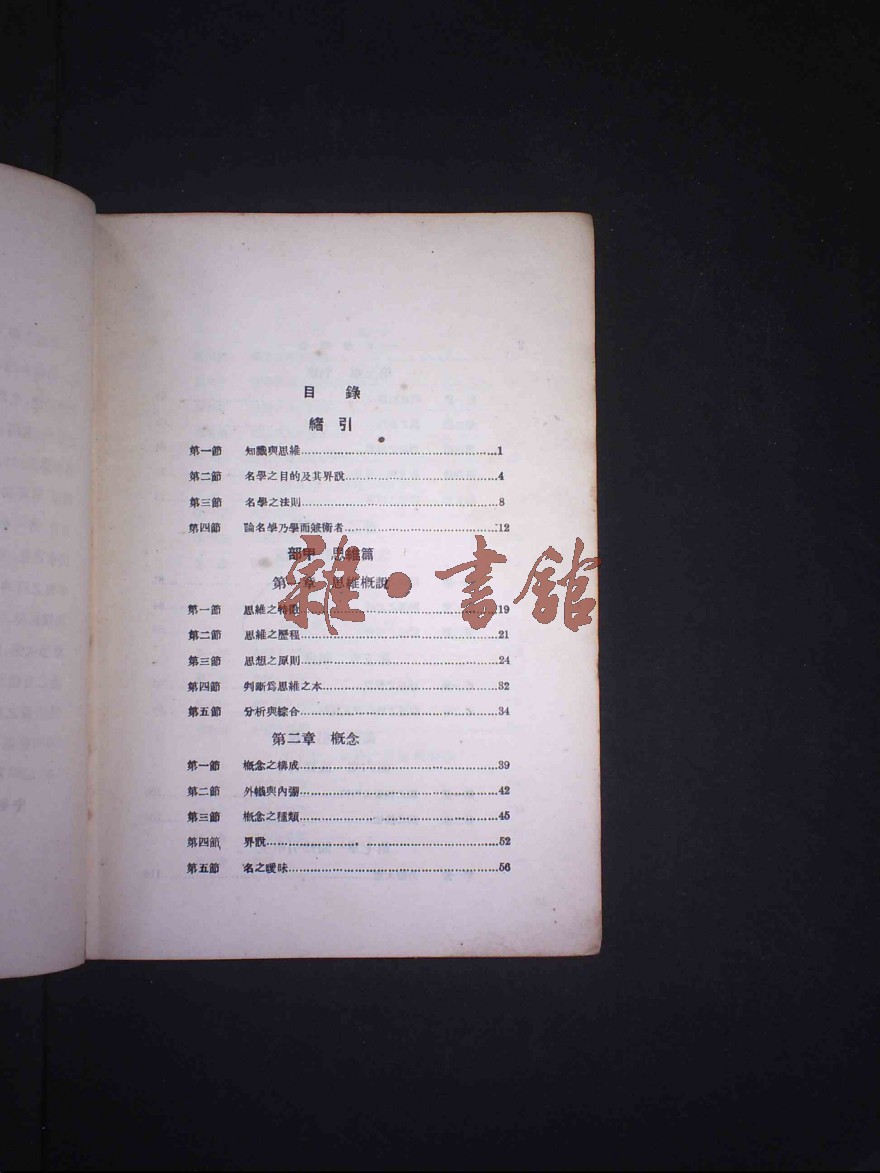 目錄
緒引
第一節 知識與思維……………………1
第二節 名學之目的及其界說……………………4
第三節 名學之法則……………………8
第四節 論名學乃學而兼術者……………………12
部甲 思維篇
第一章 思維概說
第一節 思維之特徵……………………19
第二節 思維之歷程……………………21
第三節 思想之原則……………………24
第四節 判斷爲思維之本……………………32
第五節 分析與綜合……………………34
第二章 概念
第一節 概念之構成……………………39
第二節 外幟與內涵……………………42
第三節 概念之種類……………………45
第四節 界說……………………52
第五節 名之曖昧……………………56
雜·書館